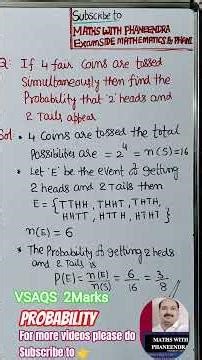 Subscribe to
MATHS WITH PHANEENDRA
EXAMSIDE MATHEMATICS & PHANI
Q: If 4 fair coins are tossed
Simultaneously then find the
Probability that '2' heads and
2 Tails appear
Sol: • 4 Coins are tossed the total
Possibilities are = 2⁴ = n(S) = 16
• Let 'E' be the event of getting
2 heads and 2 Tails then
E = {TTHH, THHT, THTH,
HHTT, HTTH, HTHT}
n(E) = 6
• The Probability of getting 2 heads
and 2 Tails is
P(E) = n(E)/n(S) = 6/16 = 3/8
VSAQS 2Marks
PROBABILITY
For more videos please do
Subscribe to
MATHS WITH
PHANEENDRA